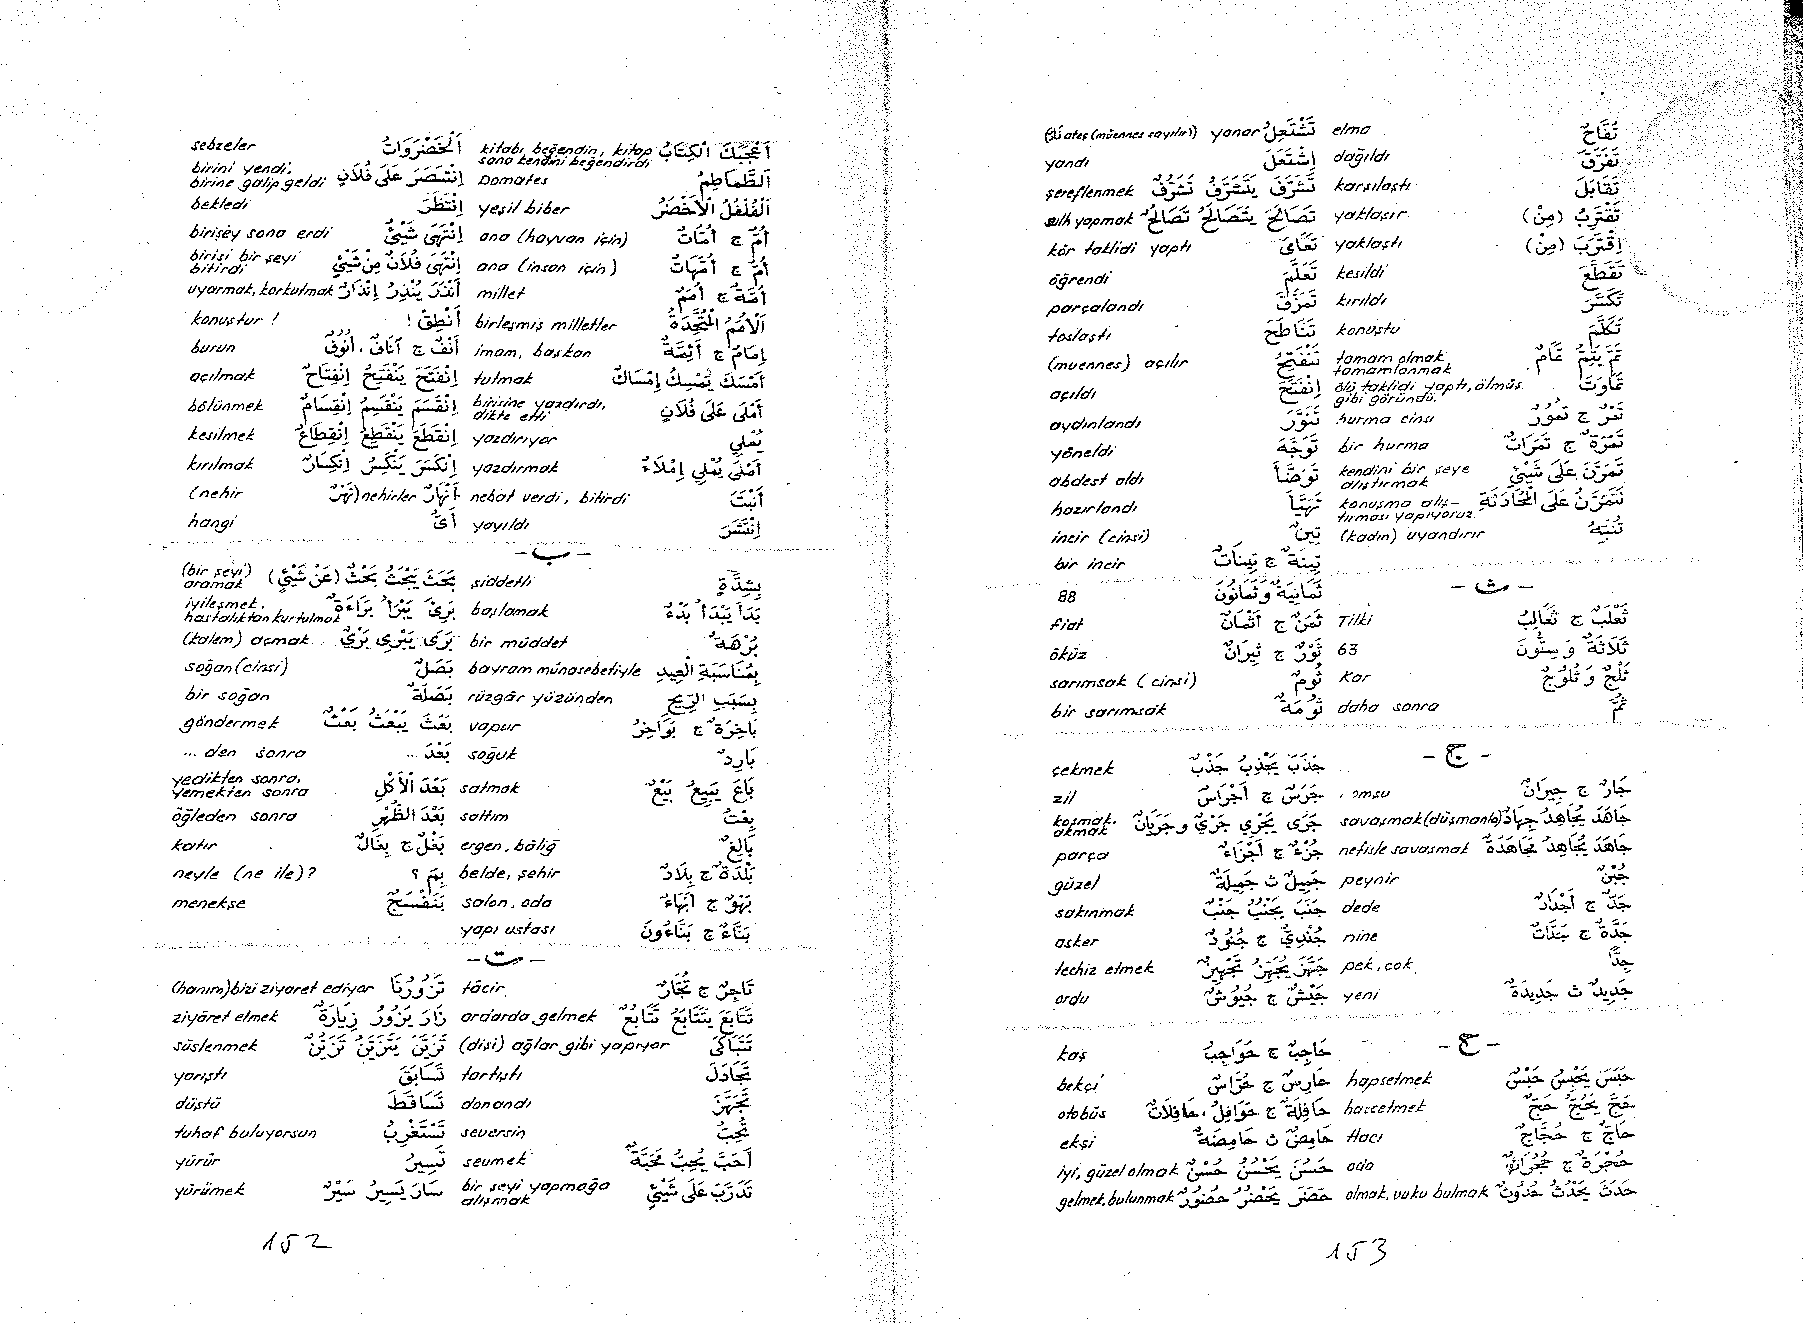 أَعْجَبَكَ الْكِتَابُ kitabı, beğendin, kitap sana kendini beğendirdi
اَلطَّمَاطِمُ Domates
اَلْفُلْفُلُ الْأَخْضَرُ yeşil biber
أُمٌّ ج أُمَّاتٌ ana (hayvan için)
أُمٌّ ج أُمَّهَاتٌ ana (insan için)
أُمَّةٌ ج أُمَمٌ millet
اَلْأُمَمُ الْمُتَّحِدَةُ birleşmiş milletler
إِمَامٌ ج أَئِمَّةٌ imam, başkan
أَمْسَكَ يُمْسِكُ إِمْسَاكٌ tutmak
أَمْلَى عَلَى فُلَانٍ birisine yazdırdı, dikte etti
يُمْلِي yazdırıyor
أَمْلَى يُمْلِي إِمْلَاءٌ yazdırmak
أَنْبَتَ nebat verdi, bitirdi
اِنْتَشَرَ yayıldı
اَلْخَضْرَوَاتُ sebzeler
اِنْتَصَرَ عَلَى فُلَانٍ birini yendi, birine galip geldi
اِنْتَظَرَ bekledi
اِنْتَهَى شَيْئٌ birişey sona erdi
اِنْتَهَى فُلَانٌ مِنْ شَيْئٍ birisi bir şeyi bitirdi
أَنْذَرَ يُنْذِرُ إِنْذَارٌ uyarmak, korkutmak
أَنْطِقْ ! konuştur !
أَنْفٌ ج آنَافٌ ، أُنُوفٌ burun
اِنْفَتَحَ يَنْفَتِحُ اِنْفِتَاحٌ açılmak
اِنْقَسَمَ يَنْقَسِمُ اِنْقِسَامٌ bölünmek
اِنْقَطَعَ يَنْقَطِعُ اِنْقِطَاعٌ kesilmek
اِنْكَسَرَ يَنْكَسِرُ اِنْكِسَارٌ kırılmak
أَنْهَارٌ nehirler (نَهْرٌ nehir)
أَيُّ hangi
- ب -
بِشِدَّةٍ şiddetli
بَدَأَ يَبْدَأُ بَدْءٌ başlamak
بُرْهَةٌ bir müddet
بِمُنَاسَبَةِ الْعِيدِ bayram münasebetiyle
بِسَبَبِ الرِّيحِ rüzgâr yüzünden
بَاخِرَةٌ ج بَوَاخِرُ vapur
بَارِدٌ soğuk
بَاعَ يَبِيعُ بَيْعٌ satmak
بِعْتُ sattım
بَالِغٌ ergen, bâliğ
بَلْدَةٌ ج بِلَادٌ belde, şehir
بَهْوٌ ج أَبْهَاءٌ salon, oda
بَنَّاءٌ ج بَنَّاءُونَ yapı ustası
بَحَثَ يَبْحَثُ بَحْثٌ (عَنْ شَيْئٍ) (bir şeyi) aramak
بَرِئَ يَبْرَأُ بَرَاءَةٌ iyileşmek, hastalıktan kurtulmak
بَرَى يَبْرِى بَرْيٌ (kalem) açmak
بَصَلٌ soğan (cinsi)
بَصَلَةٌ bir soğan
بَعَثَ يَبْعَثُ بَعْثٌ göndermek
بَعْدَ ... ... den sonra
بَعْدَ الْأَكْلِ yedikten sonra, yemekten sonra
بَعْدَ الظُّهْرِ öğleden sonra
بَغْلٌ ج بِغَالٌ katır
بِمَ ؟ neyle (ne ile)?
بَنَفْسَجٌ menekşe
- ت -
تَاجِرٌ ج تُجَّارٌ tâcir
تَتَابَعَ يَتَتَابَعُ تَتَابُعٌ ardarda gelmek
تَتَبَاكَى (dişi) ağlar gibi yapıyor
تَجَادَلَ tartıştı
تَجَهَّزَ donandı
تُحِبُّ seversin
أَحَبَّ يُحِبُّ مَحَبَّةٌ sevmek
تَدَرَّبَ عَلَى شَيْئٍ bir şeyi yapmağa alışmak
تَزُورُنَا (hanım) bizi ziyaret ediyor
زَارَ يَزُورُ زِيَارَةٌ ziyâret etmek
تَزَيَّنَ يَتَزَيَّنُ تَزَيُّنٌ süslenmek
تَسَابَقَ yarıştı
تَسَاقَطَ düştü
تَسْتَغْرِبُ tuhaf buluyorsun
تَسِيرُ yürür
سَارَ يَسِيرُ سَيْرٌ yürümek
152
تُفَّاحٌ elma
تَفَرَّقَ dağıldı
تَقَابَلَ karşılaştı
تَقْتَرِبُ (مِنْ) yaklaşır
اِقْتَرَبَ (مِنْ) yaklaştı
تَقَطَّعَ kesildi
تَكَسَّرَ kırıldı
تَكَلَّمَ konuştu
تَمَّ يَتِمُّ تَمَامٌ tamam olmak, tamamlanmak
تَمَاوَتَ ölü taklidi yaptı, ölmüş gibi göründü
تَمْرٌ ج تُمُورٌ hurma cinsi
تَمْرَةٌ ج تَمَرَاتٌ bir hurma
تَمَرَّنَ عَلَى شَيْئٍ kendini bir şeye alıştırmak
نَتَمَرَّنُ عَلَى الْمُحَادَثَةِ konuşma alış- tırması yapıyoruz
تُنَبِّهُ (kadın) uyandırır
تَشْتَعِلُ yanar ateş (müennes sayılır)
اِشْتَعَلَ yandı
تَشَرَّفَ يَتَشَرَّفُ تَشَرُّفٌ şereflenmek
تَصَالَحَ يَتَصَالَحُ تَصَالُحٌ sulh yapmak
تَعَامَى kör taklidi yaptı
تَعَلَّمَ öğrendi
تَمَزَّقَ parçalandı
تَنَاطَحَ toslaştı
تَنْفَتِحُ (müennes) açılır
اِنْفَتَحَ açıldı
تَنَوَّرَ aydınlandı
تَوَجَّهَ yöneldi
تَوَضَّأَ abdest aldı
تَهَيَّأَ hazırlandı
تِينٌ incir (cinsi)
تِينَةٌ ج تِينَاتٌ bir incir
- ث -
ثَعْلَبٌ ج ثَعَالِبُ Tilki
ثَلَاثَةٌ وَسِتُّونَ 63
ثَلْجٌ وَ ثُلُوجٌ Kar
ثُمَّ daha sonra
ثَمَانِيَةٌ وَثَمَانُونَ 88
ثَمَنٌ ج أَثْمَانٌ fiat
ثَوْرٌ ج ثِيرَانٌ öküz
ثُومٌ sarımsak (cinsi)
ثُومَةٌ bir sarımsak
- ج -
جَارٌ ج جِيرَانٌ
جَاهَدَ يُجَاهِدُ جِهَادٌ savaşmak (düşmanla)
جَاهَدَ يُجَاهِدُ مُجَاهَدَةٌ nefisle savaşmak
جُبْنٌ peynir
جَدٌّ ج أَجْدَادٌ dede
جَدَّةٌ ج جَدَّاتٌ nine
جِدًّا pek, çok
جَدِيدٌ ث جَدِيدَةٌ yeni
جَذَبَ يَجْذِبُ جَذْبٌ çekmek
جَرَسٌ ج أَجْرَاسٌ zil
جَرَى يَجْرِي جَرْيٌ وجَرَيَانٌ koşmak, akmak
جُزْءٌ ج أَجْزَاءٌ parça
جَمِيلٌ ث جَمِيلَةٌ güzel
جَنَبَ يَجْنُبُ جَنْبٌ sakınmak
جُنْدِيٌّ ج جُنُودٌ asker
جَهَّزَ يُجَهِّزُ تَجْهِيزٌ techiz etmek
جَيْشٌ ج جُيُوشٌ ordu
- ح -
حَبَسَ يَحْبِسُ حَبْسٌ hapsetmek
حَجَّ يَحُجُّ حَجٌّ haccetmek
حَاجٌّ ج حُجَّاجٌ Hacı
حُجْرَةٌ ج حُجُرَاتٌ oda
حَدَثَ يَحْدُثُ حُدُوثٌ olmak, vuku bulmak
حَاجِبٌ ج حَوَاجِبُ kaş
حَارِسٌ ج حُرَّاسٌ bekçi
حَافِلَةٌ ج حَوَافِلُ ، حَافِلَاتٌ otobüs
حَامِضٌ ث حَامِضَةٌ ekşi
حَسُنَ يَحْسُنُ حُسْنٌ iyi, güzel olmak
حَضَرَ يَحْضُرُ حُضُورٌ gelmek, bulunmak
153